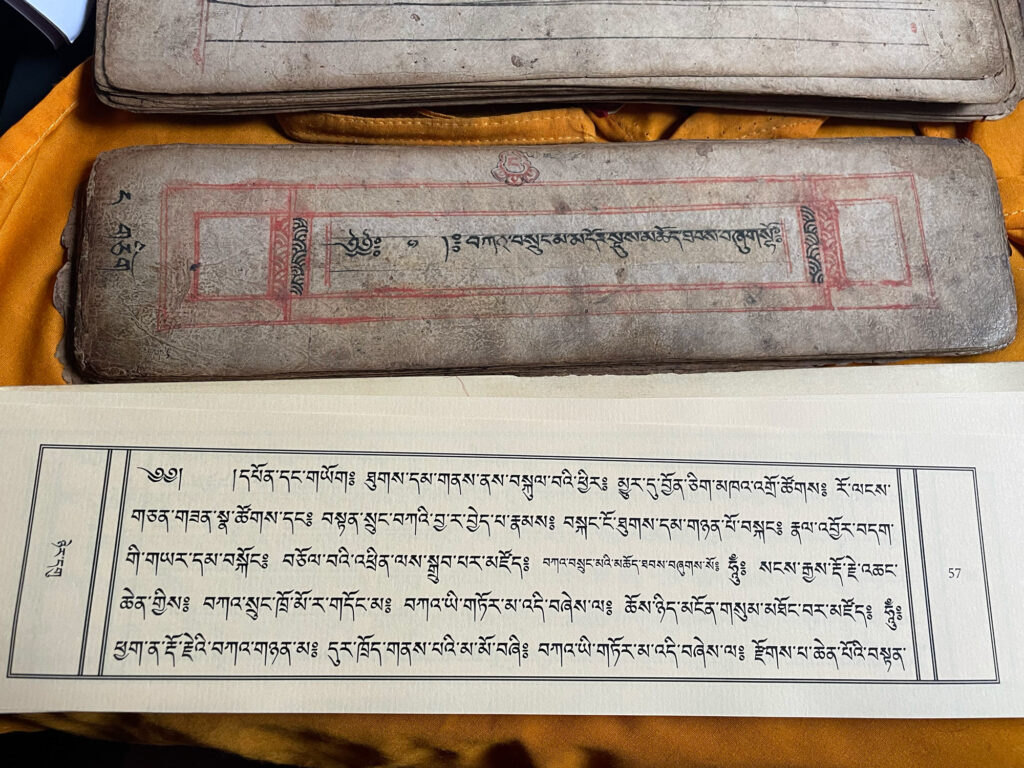 ད གཅིག
༄༅༅༔ ༔ །༔བཀའ་བསྲུང་མ་མདོར་སྡུས་མཆོད་ཐབས་བཞུགསྶོ༔
༄༅། །དཔོན་དང་གཡོག༔ ཐུགས་དམ་གནས་ནས་བསྐུལ་བའི་ཕྱིར༔ མྱུར་དུ་བྱོན་ཅིག་མཁའ་འགྲོ་ཚོགས༔ རོ་ལངས་
གཅན་གཟན་སྣ་ཚོགས་དང༔ བསྟན་སྲུང་བཀའི་བྱ་ར་བྱེད་པ་རྣམས༔ བསྐང་ངོ་ཐུགས་དམ་གཉན་པོ་བསྐང༔ རྣལ་འབྱོར་བདག་
གི་གཡར་དམ་བསྐོང༔ བཅོལ་བའི་འཕྲིན་ལས་སྒྲུབ་པར་མཛོད༔ བཀའ་བསྲུང་མའི་མཆོད་ཐབས་བཞུགས་སོ༔ ཧཱུྃ༔ སངས་རྒྱས་རྡོ་རྗེ་འཆང་
ཆེན་གྱིས༔ བཀའ་སྲུང་ཁྲོ་མོ་ར་གདོང་མ༔ བཀའ་ཡི་གཏོར་མ་འདི་བཞེས་ལ༔ ཆོས་ཉིད་མངོན་གསུམ་མཐོང་བར་མཛོད༔ ཧཱུྃ༔
ཕྱག་ན་རྡོ་རྗེའི་བཀའ་གཉན་མ༔ དུར་ཁྲོད་གནས་པའི་མ་མོ་བཞི༔ བཀའ་ཡི་གཏོར་མ་འདི་བཞེས་ལ༔ རྫོགས་པ་ཆེན་པོའི་བསྟན་
ཉེར་དགུ
57